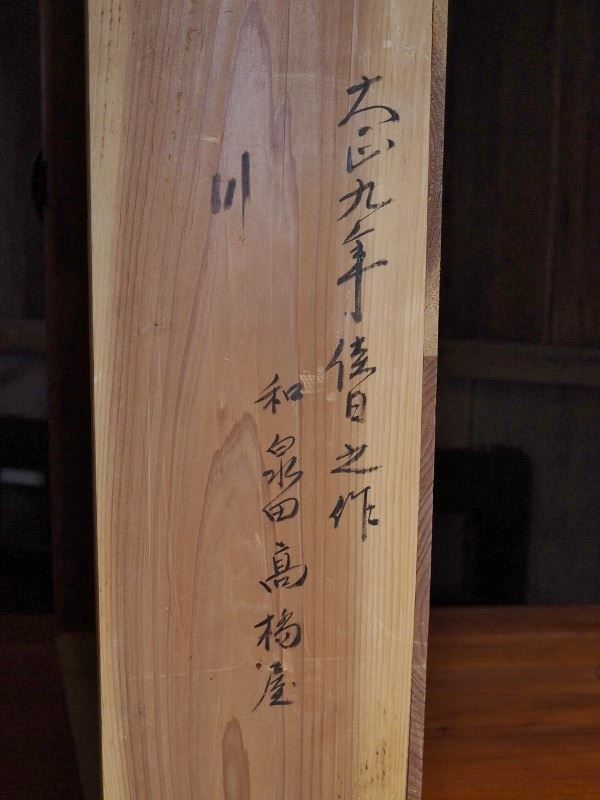 大正九年佳日之作
和泉田高橋屋
川